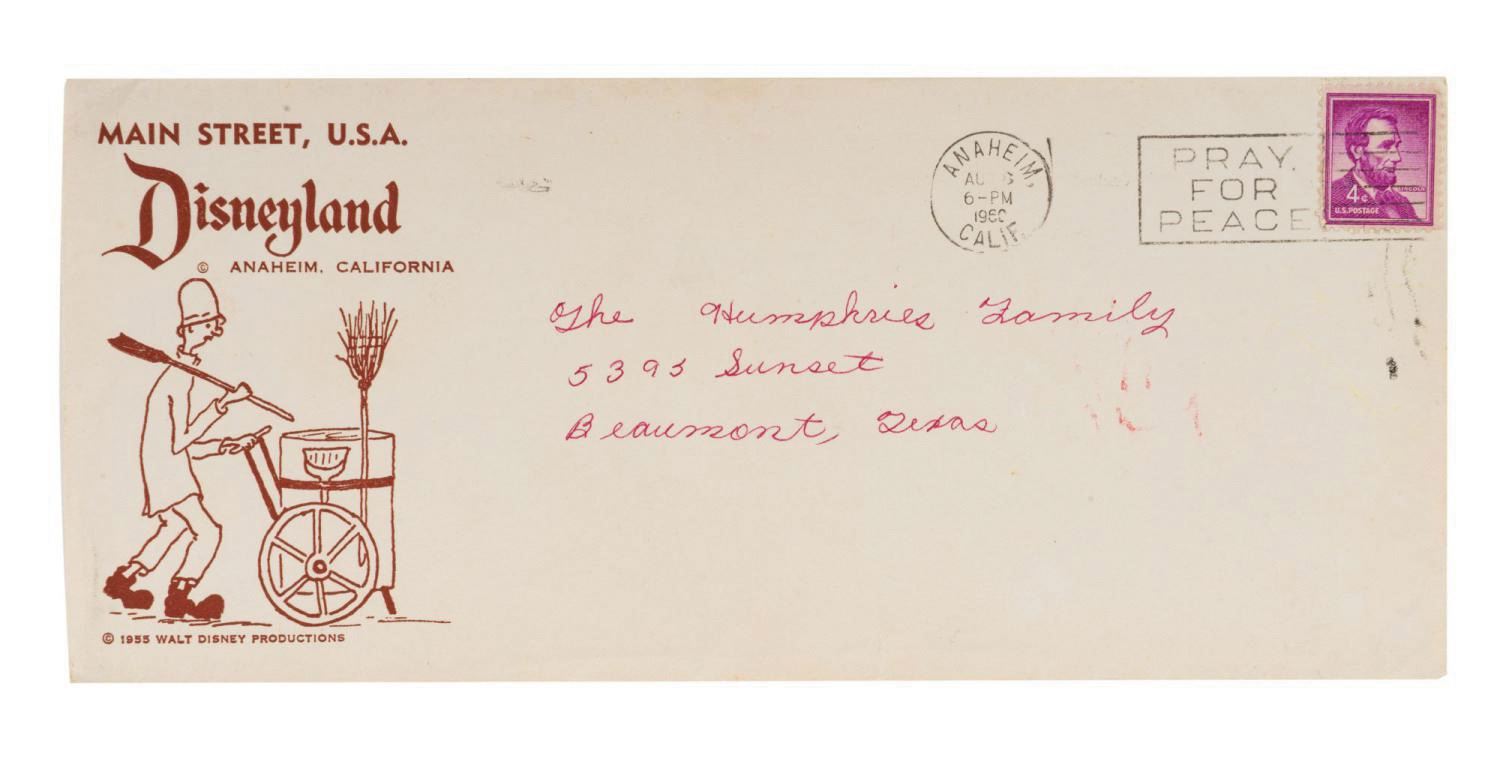 MAIN STREET, U.S.A.
Disneyland
© ANAHEIM, CALIFORNIA
© 1955 WALT DISNEY PRODUCTIONS
ANAHEIM,
6-PM
CALIF.
PRAY
FOR
PEACE
4¢ LINCOLN
U.S. POSTAGE
The Humphries Family
5395 Sunset
Beaumont, Texas